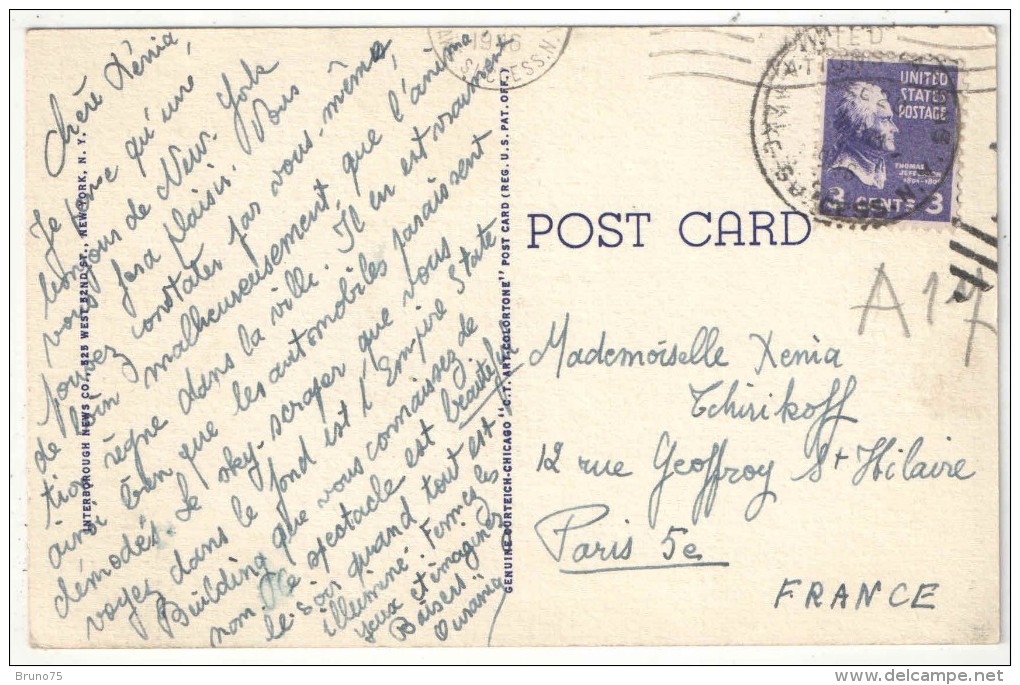 Chère Xénia,
Je pense qu'une
bonjour de New-York
vous fera plaisir. Vous
pouvez constater par vous-même,
de loin malheureusement, que l'anima
tion règne dans la ville. Il en est vraiment
ainsi bien que les automobiles paraissent
démodés. Le sky-scraper que vous
voyez dans le fond est l'Empire State
Building que vous connaissez de
nom. Le spectacle est beautiful
le soir quand tout est
illuminé. Fermez les
yeux et imaginez
Baisers
Ourania
INTERBOROUGH NEWS CO., 525 WEST 52ND ST., NEW YORK, N. Y.
GENUINE CURTEICH-CHICAGO "C.T. ART-COLORTONE" POST CARD (REG. U.S. PAT. OFF.)
1946
SUCCESS. N.Y.
UNITED
UNITED
STATES
POSTAGE
THOMAS
JEFFERSON
3 CENTS 3
POST CARD
A17
Mademoiselle Xenia
Tchirikoff
12 rue Geoffroy St Hilaire
Paris 5e
FRANCE
Bruno75
delcampe.net